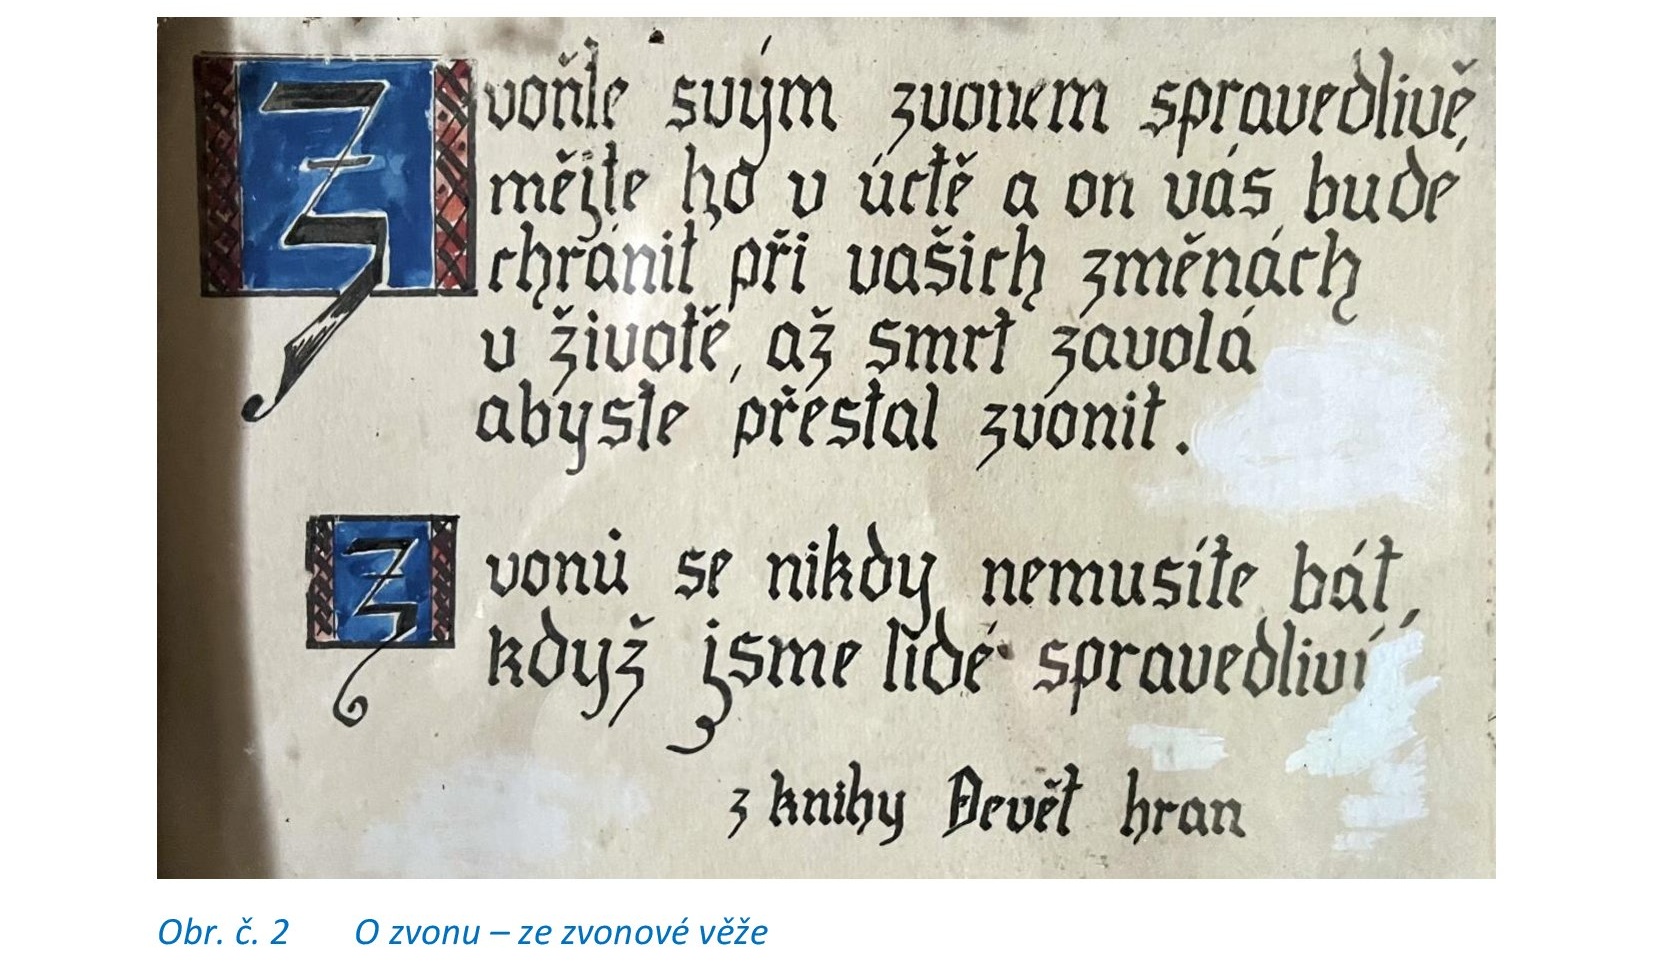 Zvoňte svým zvonem spravedlivě,
mějte ho v úctě a on vás bude
chránit při vašich změnách
v životě, až smrt zavolá
abyste přestal zvonit.
Zvonů se nikdy nemusíte bát,
když jsme lidé spravedliví
z knihy Devět hran
Obr. č. 2 O zvonu – ze zvonové věže